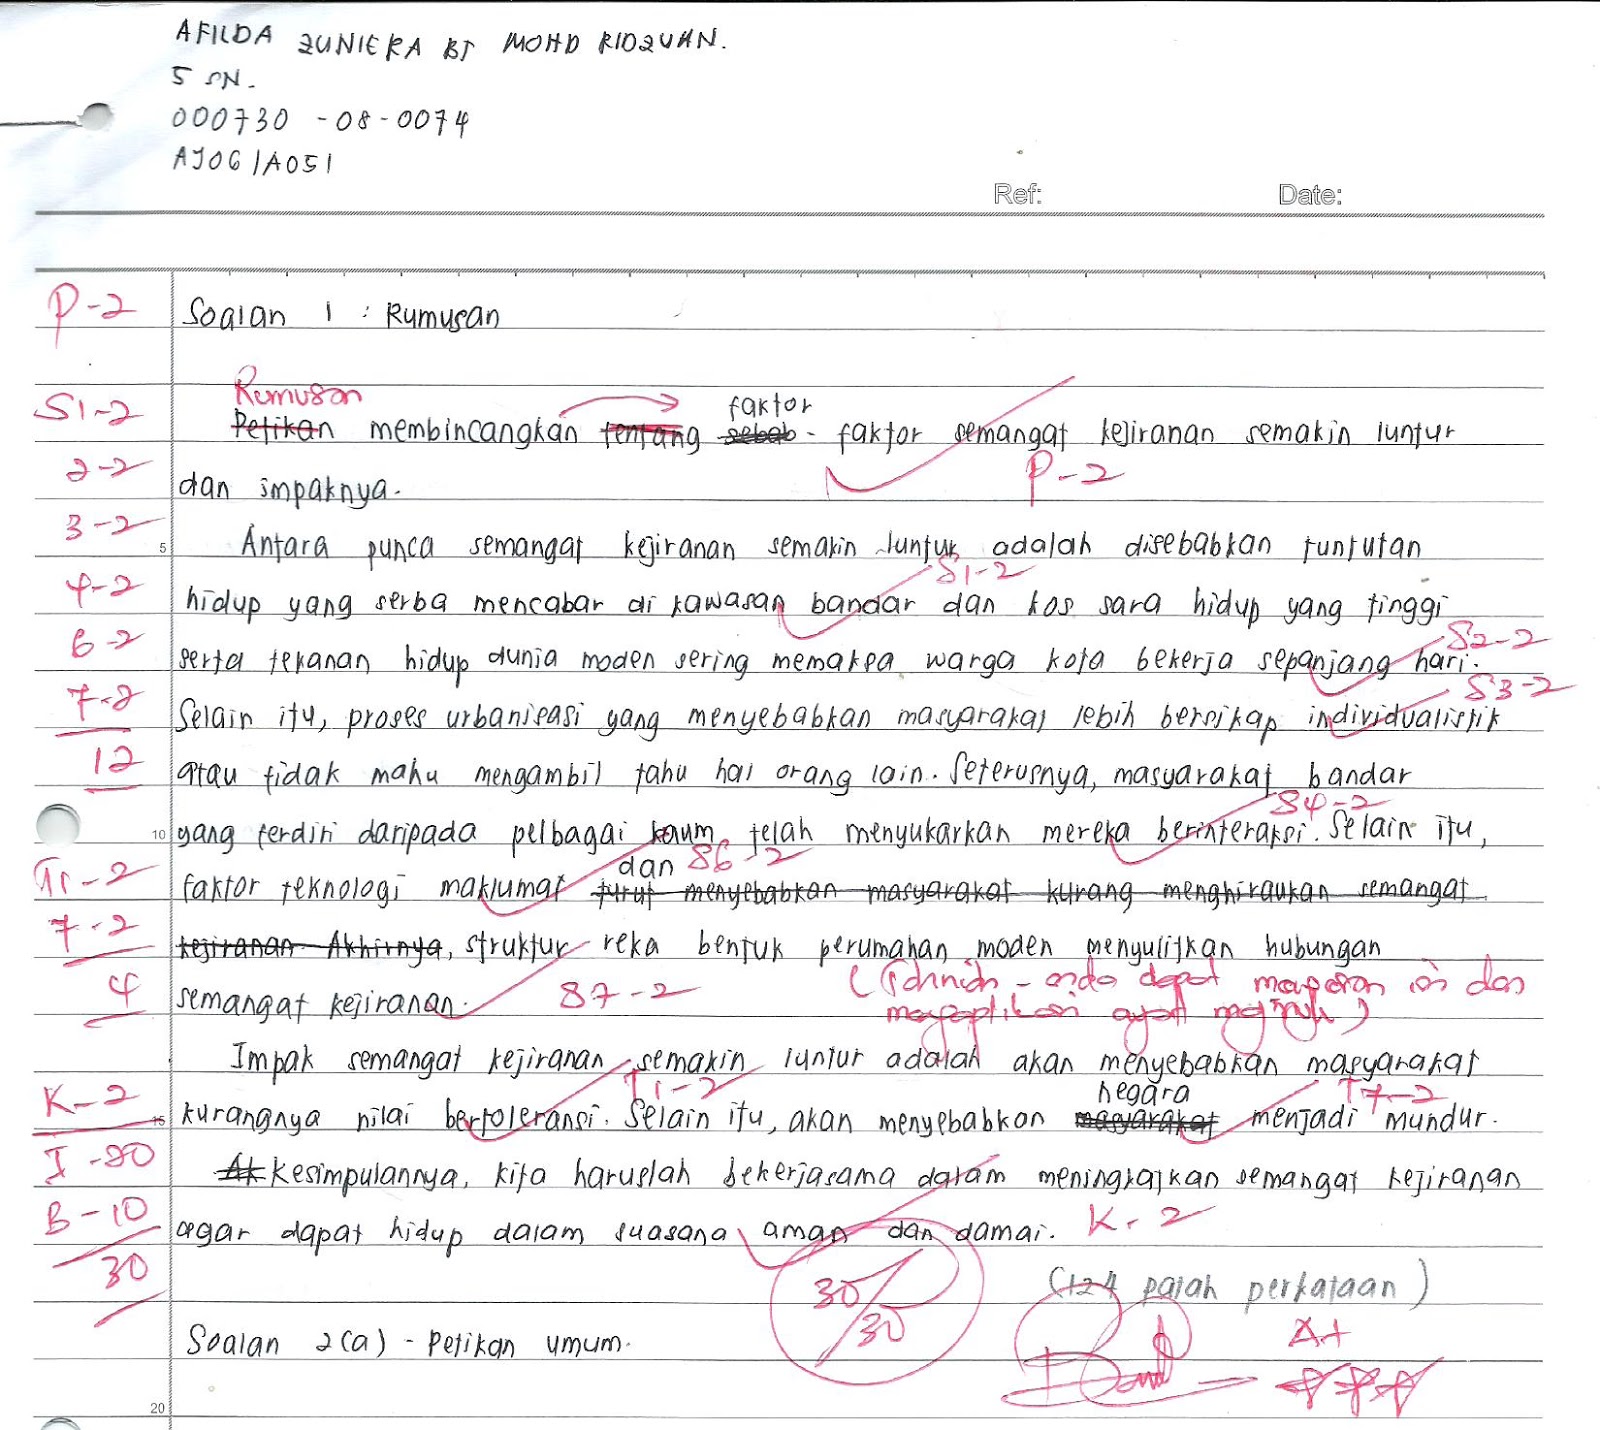 AFILDA ZUNIERA BT MOHD RIDZUAN.
5 SN.
000730 - 08 - 0074
AJ061A051
Ref: Date:
P-2 Soalan 1 : Rumusan
Rumusan
S1-2 Petikan membincangkan tentang sebab - faktor semangat kejiranan semakin luntur
faktor
2-2 dan impaknya. P-2
3-2 5 Antara punca semangat kejiranan semakin luntur adalah disebabkan tuntutan
S1-2
4-2 hidup yang serba mencabar di kawasan bandar dan kos sara hidup yang tinggi
S2-2
6-2 serta tekanan hidup dunia moden sering memaksa warga kota bekerja sepanjang hari.
S3-2
7-2 Selain itu, proses urbanisasi yang menyebabkan masyarakat lebih bersikap individualistik
12 atau tidak mahu mengambil tahu hal orang lain. Seterusnya, masyarakat bandar
S4-2
10 yang terdiri daripada pelbagai kaum telah menyukarkan mereka berinteraksi. Selain itu,
dan S6-2
-2 faktor teknologi maklumat turut menyebabkan masyarakat kurang menghiraukan semangat
7-2 kejiranan Akhirnya, struktur reka bentuk perumahan moden menyulitkan hubungan
4 semangat kejiranan. S7-2
( - anda dapat isi dan
ayat )
Impak semangat kejiranan semakin luntur adalah akan menyebabkan masyarakat
T1-2 negara T7-2
K-2 15 kurangnya nilai bertoleransi. Selain itu, akan menyebabkan masyarakat menjadi mundur.
I-20 Ak Kesimpulannya, kita haruslah bekerjasama dalam meningkatkan semangat kejiranan
B-10 agar dapat hidup dalam suasana aman dan damai. K-2
30 30/30 (124 patah perkataan)
Soalan 2(a) - Petikan umum. A+
20